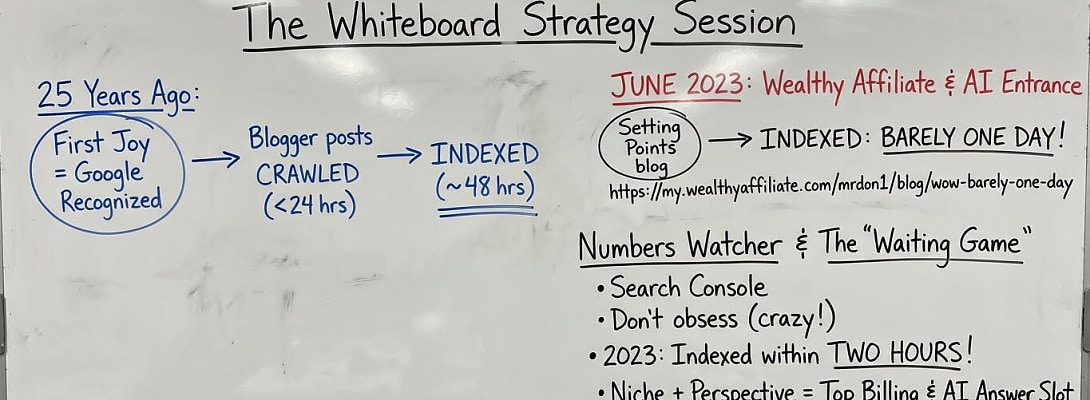 The Whiteboard Strategy Session
25 Years Ago:
First Joy
= Google
Recognized
Blogger posts
CRAWLED
(<24 hrs)
INDEXED
(~48 hrs)
JUNE 2023: Wealthy Affiliate & AI Entrance
Setting
Points
blog
INDEXED: BARELY ONE DAY!
https://my.wealthyaffiliate.com/mrdon1/blog/wow-barely-one-day
Numbers Watcher & The "Waiting Game"
• Search Console
• Don't obsess (crazy!)
• 2023: Indexed within TWO HOURS!
• Niche + Perspective = Top Billing & AI Answer Slot